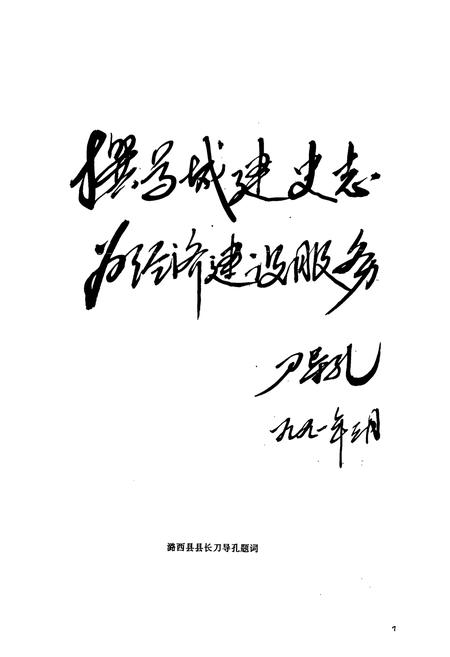 撰写城建史志
为经济建设服务
刀导孔
一九九一年三月
潞西县县长刀导孔题词
7